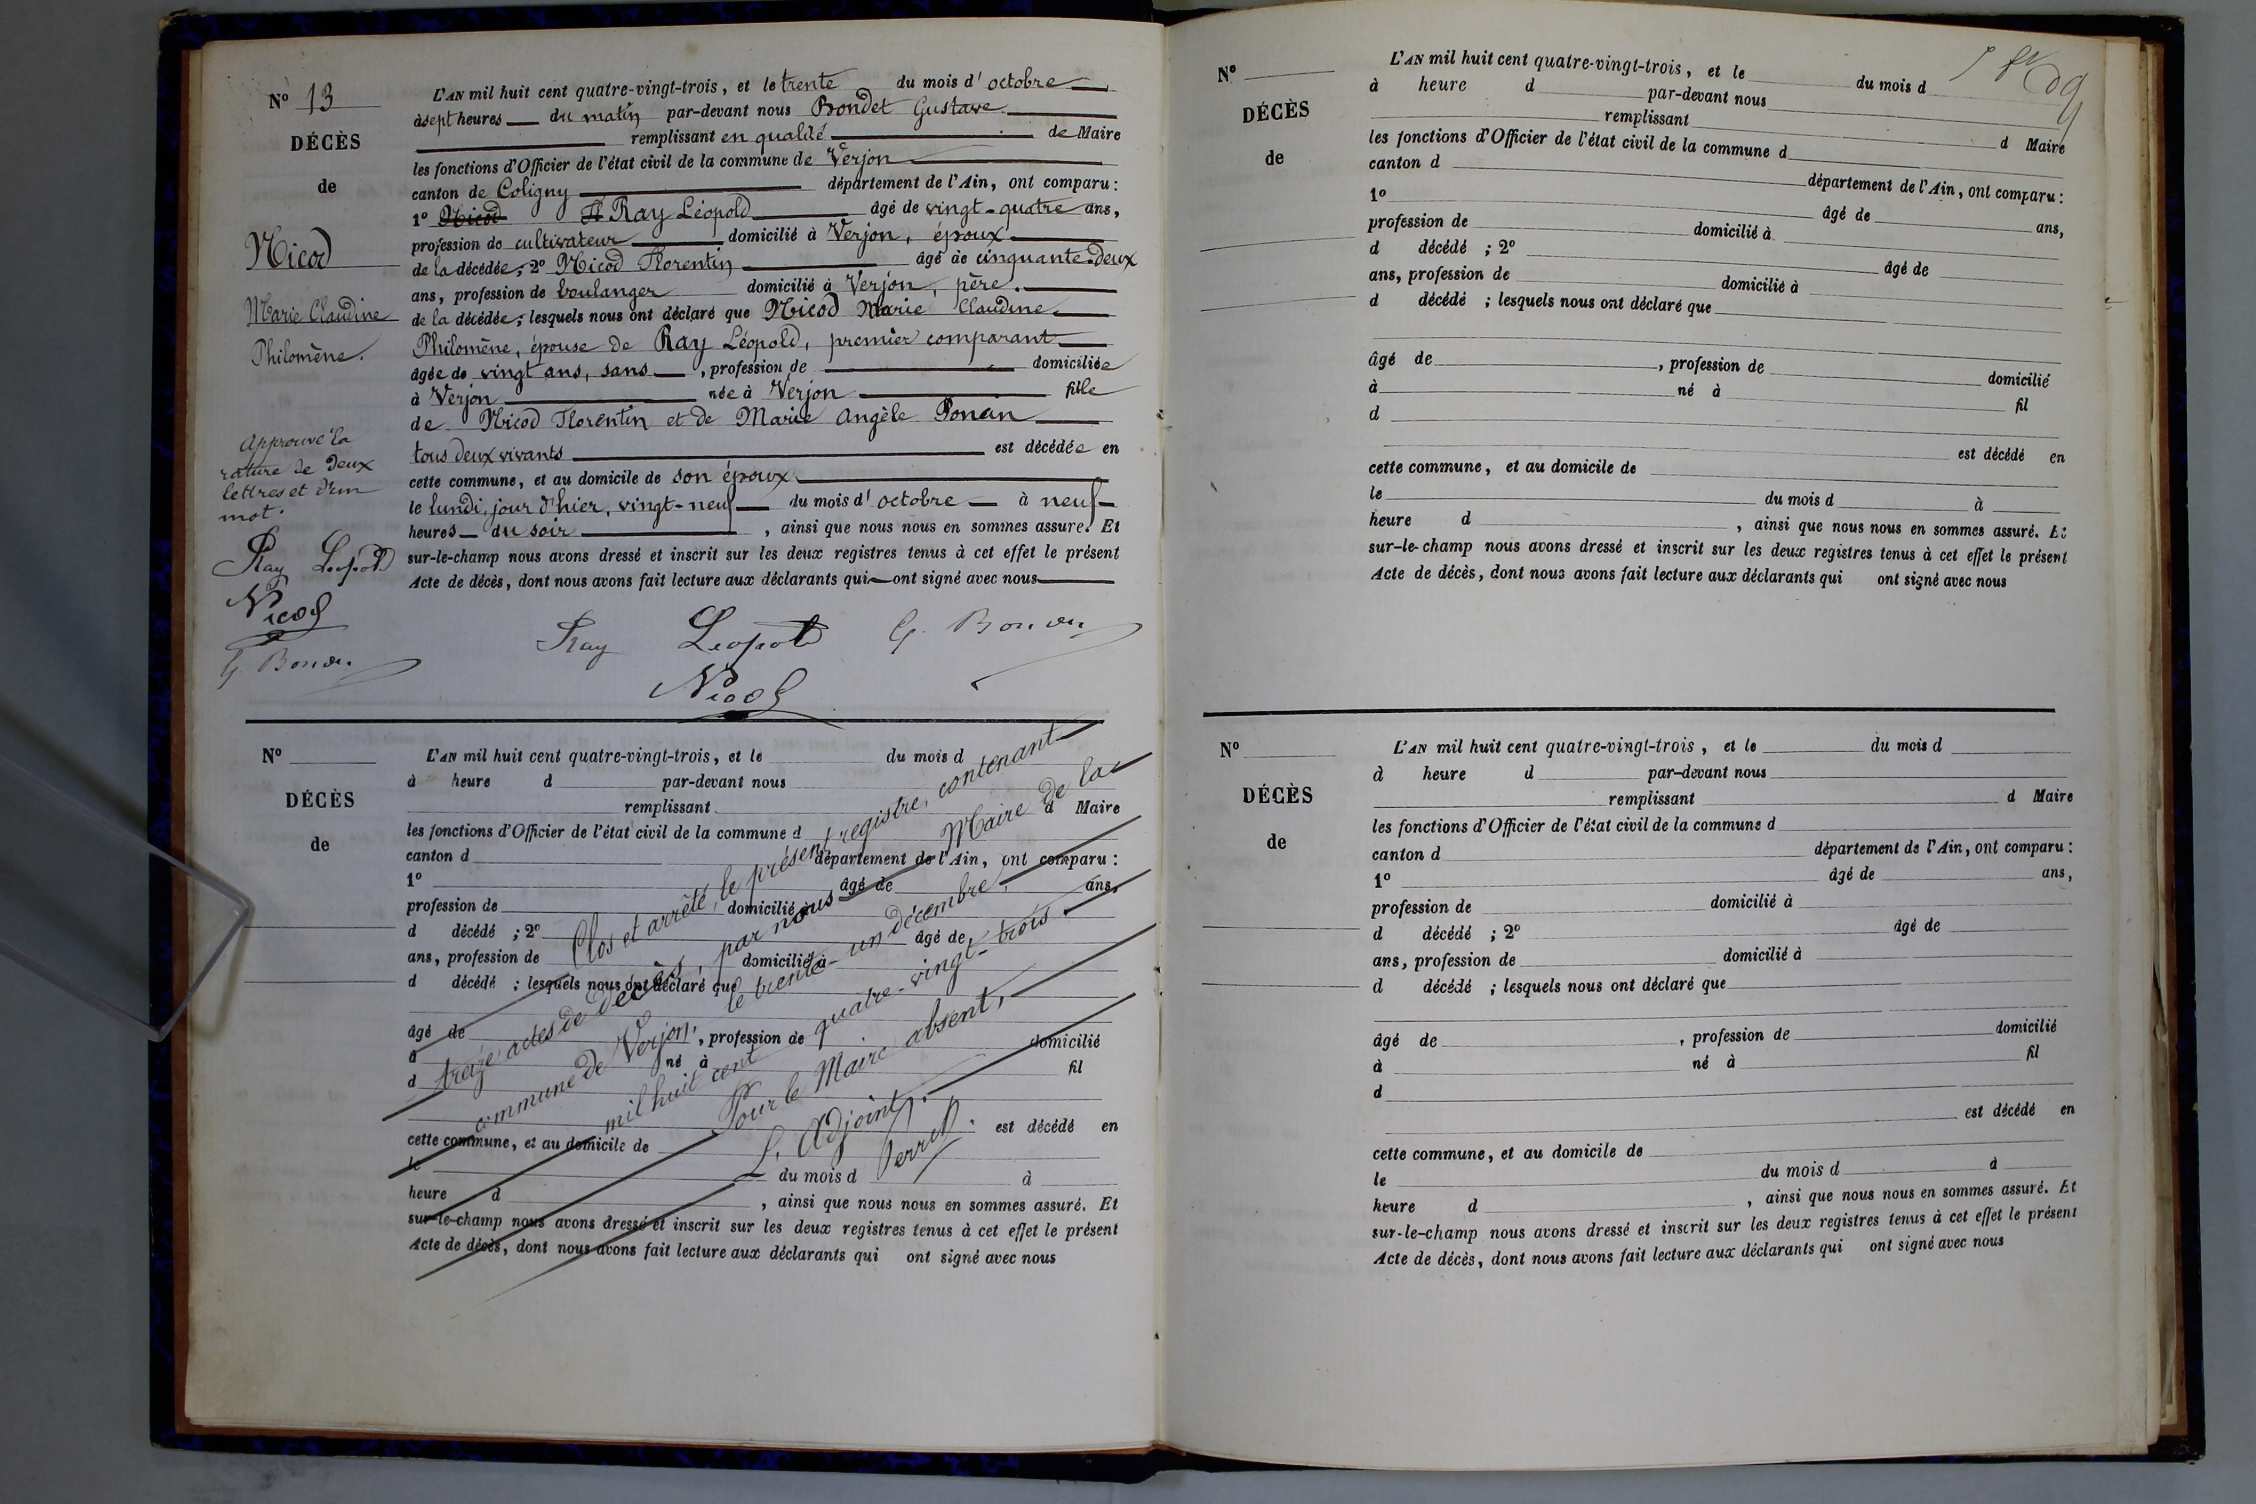 Nº 13
DÉCÈS
de
Nicod
Marie Claudine
Philomène.
Approuvé la
rature de deux
lettres et d'un
mot.
Ray Léopold
Nicod
L'AN mil huit cent quatre-vingt-trois, et le trente du mois d'octobre
à sept heures du matin par-devant nous Bondet Gustave
remplissant en qualité de Maire
les fonctions d'Officier de l'état civil de la commune de Verjon
canton de Coligny département de l'Ain, ont comparu :
1º Nicod Ray Léopold âgé de vingt-quatre ans,
profession de cultivateur domicilié à Verjon, époux
de la décédée ; 2º Nicod Florentin âgé de cinquante-deux
ans, profession de boulanger domicilié à Verjon, père
de la décédée ; lesquels nous ont déclaré que Nicod Marie Claudine
Philomène, épouse de Ray Léopold, premier comparant
âgée de vingt ans, sans , profession de domiciliée
à Verjon née à Verjon fille
de Nicod Florentin et de Marie Angèle Ponan
tous deux vivants est décédée en
cette commune, et au domicile de son époux
le lundi, jour d'hier, vingt-neuf du mois d'octobre à neuf
heures du soir , ainsi que nous nous en sommes assuré. Et
sur-le-champ nous avons dressé et inscrit sur les deux registres tenus à cet effet le présent
Acte de décès, dont nous avons fait lecture aux déclarants qui ont signé avec nous
Ray Léopold
Nicod
Nº
DÉCÈS
de
L'AN mil huit cent quatre-vingt-trois, et le du mois d
à heure d par-devant nous
remplissant d Maire
les fonctions d'Officier de l'état civil de la commune d
canton d département de l'Ain, ont comparu :
1º âgé de ans,
profession de domicilié à
d décédé ; 2º âgé de
ans, profession de domicilié à
d décédé ; lesquels nous ont déclaré que
âgé de , profession de domicilié
à né à fil
d
est décédé en
cette commune, et au domicile de
le du mois d à
heure d , ainsi que nous nous en sommes assuré. Et
sur-le-champ nous avons dressé et inscrit sur les deux registres tenus à cet effet le présent
Acte de décès, dont nous avons fait lecture aux déclarants qui ont signé avec nous
Clos et arrêté, le présent registre, contenant
treize actes de décès, par nous Maire de la
commune de Verjon, le trente-un décembre,
mil huit cent quatre-vingt-trois
Pour le Maire absent,
L'Adjoint,
Perret
Nº
DÉCÈS
de
L'AN mil huit cent quatre-vingt-trois, et le du mois d
à heure d par-devant nous
remplissant d Maire
les fonctions d'Officier de l'état civil de la commune d
canton d département de l'Ain, ont comparu :
1º âgé de ans,
profession de domicilié à
d décédé ; 2º âgé de
ans, profession de domicilié à
d décédé ; lesquels nous ont déclaré que
âgé de , profession de domicilié
à né à fil
d
est décédé en
cette commune, et au domicile de
le du mois d à
heure d , ainsi que nous nous en sommes assuré. Et
sur-le-champ nous avons dressé et inscrit sur les deux registres tenus à cet effet le présent
Acte de décès, dont nous avons fait lecture aux déclarants qui ont signé avec nous
Nº
DÉCÈS
de
L'AN mil huit cent quatre-vingt-trois, et le du mois d
à heure d par-devant nous
remplissant d Maire
les fonctions d'Officier de l'état civil de la commune d
canton d département de l'Ain, ont comparu :
1º âgé de ans,
profession de domicilié à
d décédé ; 2º âgé de
ans, profession de domicilié à
d décédé ; lesquels nous ont déclaré que
âgé de , profession de domicilié
à né à fil
d
est décédé en
cette commune, et au domicile de
le du mois d à
heure d , ainsi que nous nous en sommes assuré. Et
sur-le-champ nous avons dressé et inscrit sur les deux registres tenus à cet effet le présent
Acte de décès, dont nous avons fait lecture aux déclarants qui ont signé avec nous